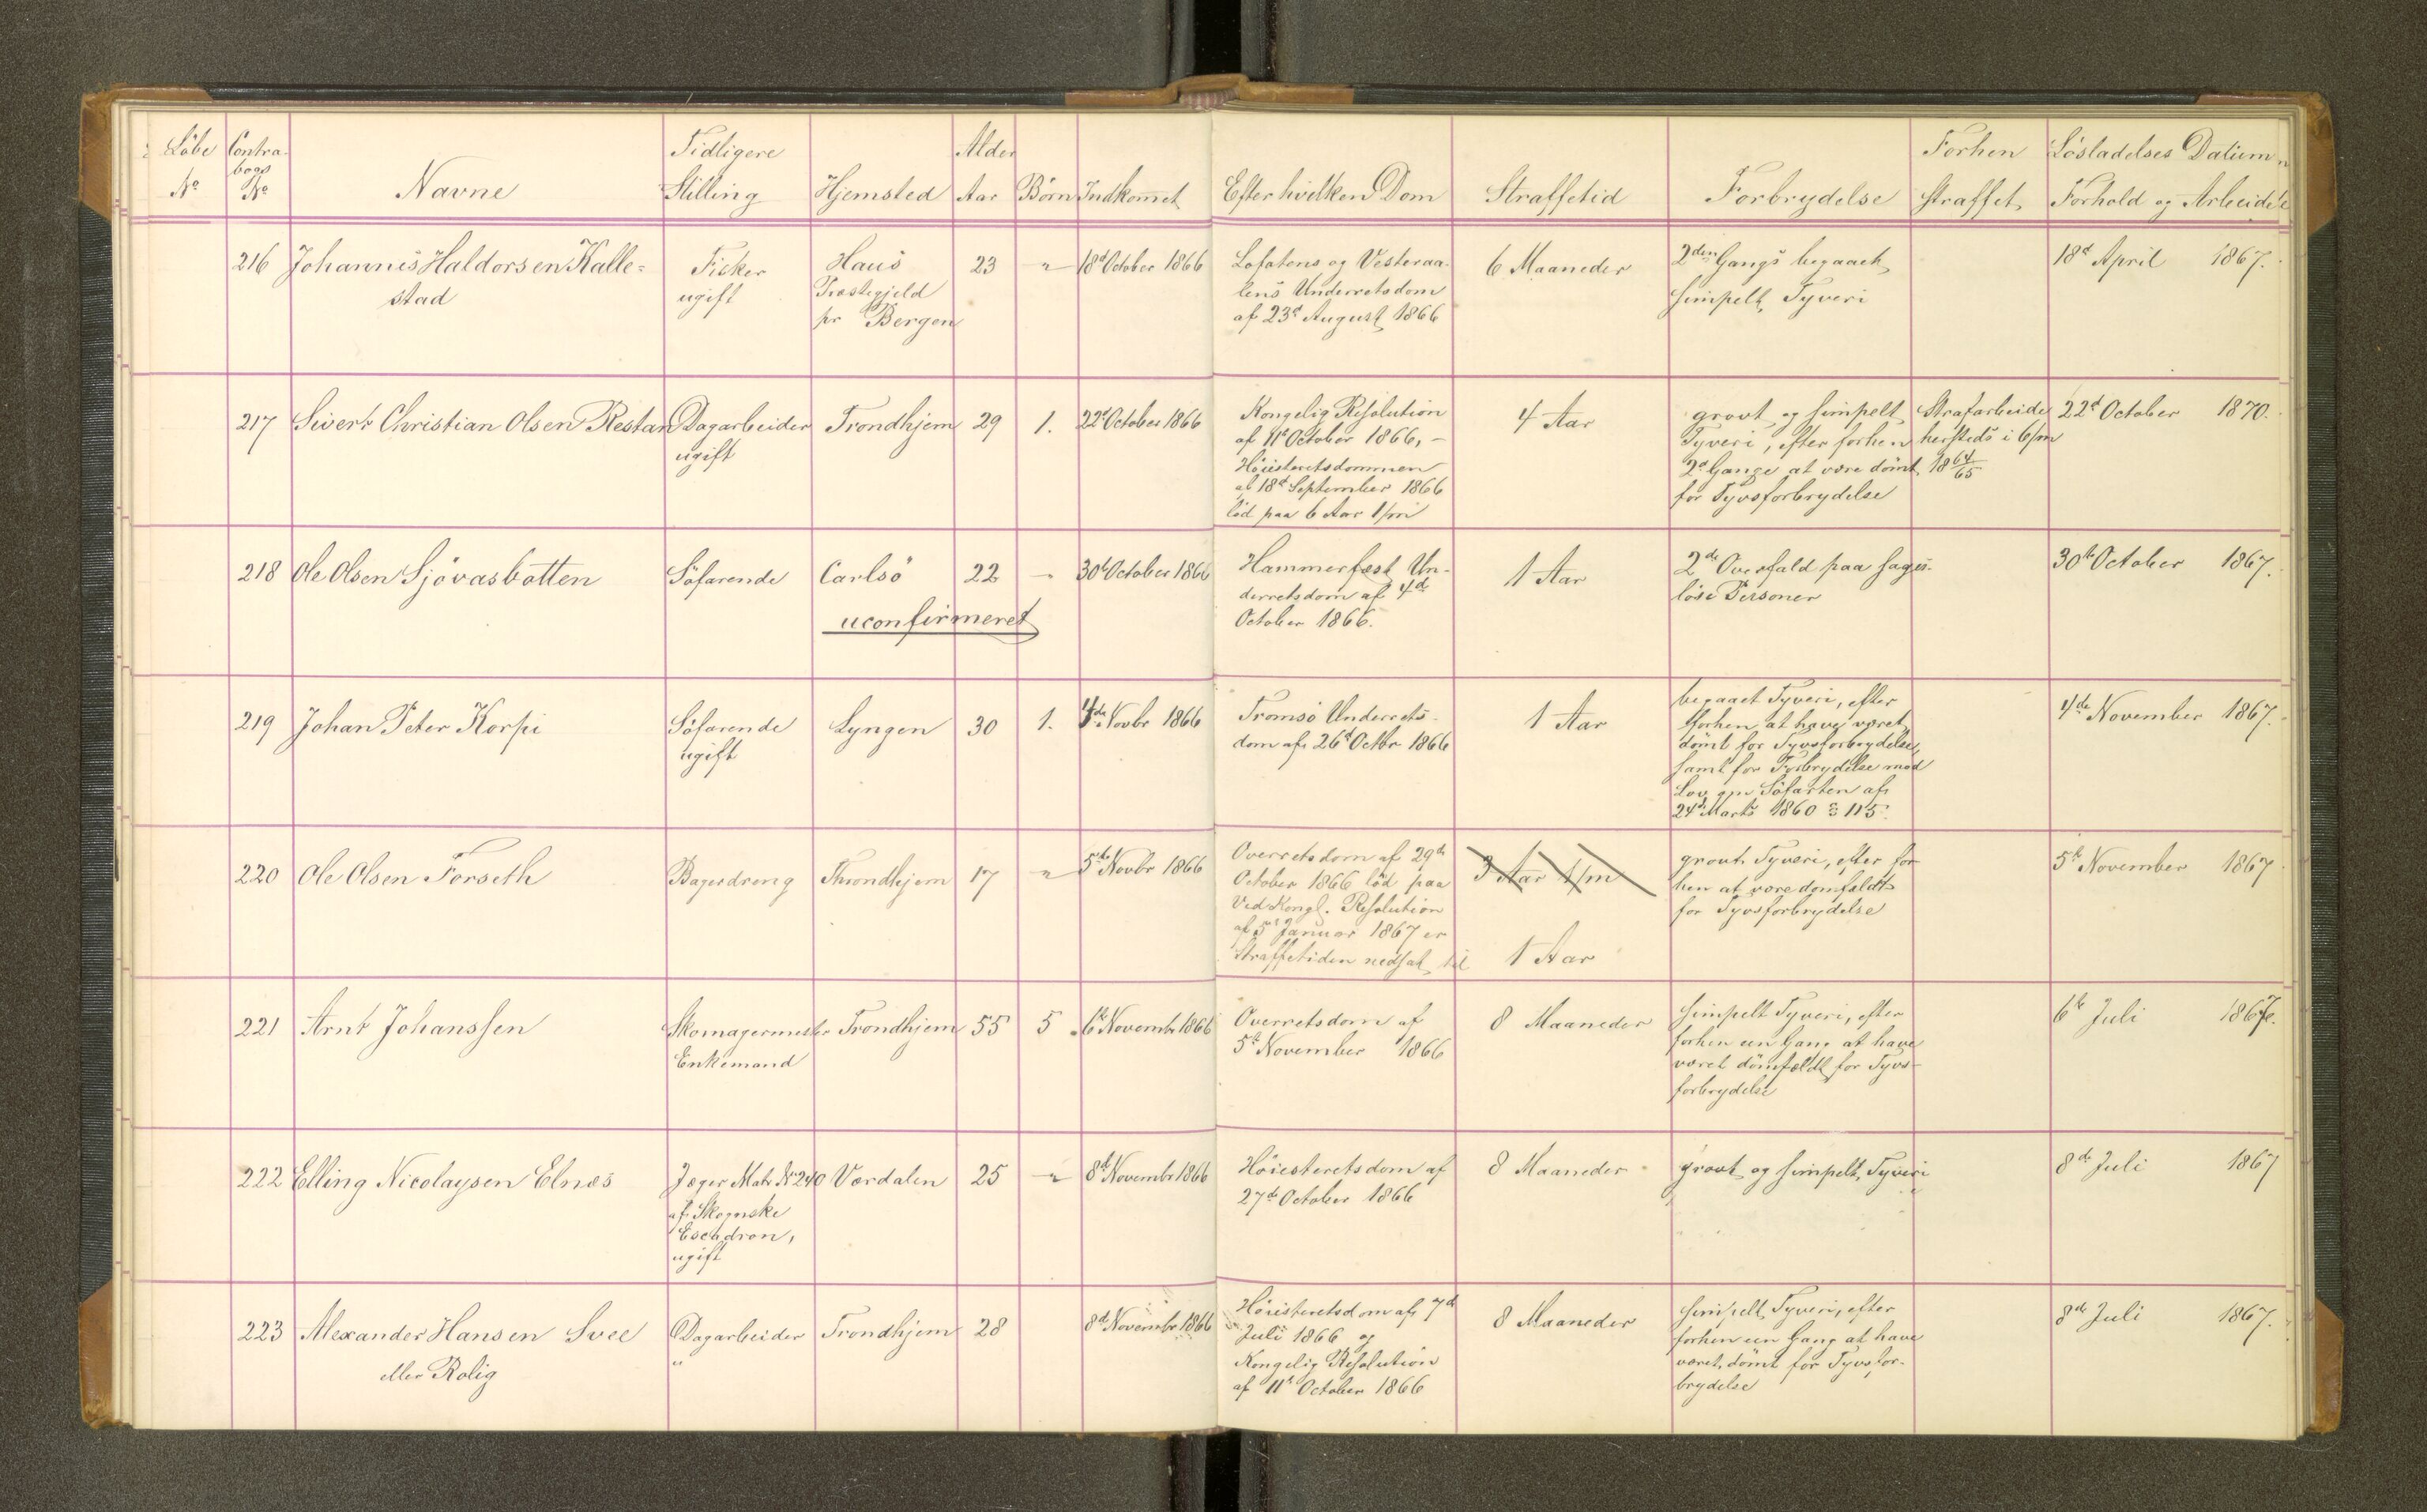 Løbe No
Contra-bogs No
Navne
Tidligere Stilling
Hjemsted
Alder Aar
Börn
Indkom̄et
Efter hvilken Dom
Straffetid
Forbrydelse
Forhen straffet
Lösladelses Datum
Forhold og Arbeide
216 Johannes Haldorsen Kalle=
stad
Fisker
ugift
Haus
Præstegjeld
pr Bergen
23
"
18d October 1866
Lofotens og Vesteraa-
lens Underretsdom
af 23d August 1866
6 Maaneder
2den Gangs begaaet
simpelt Tyveri
18d April 1867.
217 Sivert Christian Olsen Restan
Dagarbeider
ugift
Trondhjem
29
1.
22d October 1866
Kongelig Resolution
af 11te October 1866, -
Höiesteretsdommen
af 18d September 1866
löd paa 6 Aar 1/m
4 Aar
grovt og simpelt
Tyveri, efter forhen
2d Gange at være dömt
for Tyvsforbrydelse
Strafarbeide
hersteds i 6/m
18 64/65
22d October 1870.
218 Ole Olsen Sjövasbotten
Söfarende
Carlsö
uconfirmeret
22
"
30t October 1866
Hammerfest Un-
derretsdom af 4de
October 1866.
1 Aar
2de Overfald paa sages-
löse Personer
30te October 1867.
219 Johan Peter Korpi
Söfarende
ugift
Lyngen
30
1.
4de Novbr 1866
Tromsö Underrets-
dom af 26d Octbr 1866
1 Aar
begaaet Tyveri, efter
forhen at have været
dömt for Tyvsforbrydelse,
samt for Forbrydelse mod
Lov om Söfarten af
24d Marts 1860 § 115.
4de November 1867.
220 Ole Olsen Forseth
Bagerdreng
Throndhjem
17
"
5te Novbr 1866
Overretsdom af 29de
October 1866 löd paa
Ved Kongl. Resolution
af 5t Januar 1867 er
Straffetiden nedsat til
3 Aar 1/m
1 Aar
grovt Tyveri, efter for
hen at være domfældt
for Tyvsforbrydelse
5te November 1867
221 Arnt Johanssen
Skomagermester
Enkemand
Trondhjem
55
5
6te Novembr 1866
Overretsdom af
5te November 1866
8 Maaneder
simpelt Tyveri, efter
forhen een Gang at have
været domfældt for Tyvs-
forbrydelse
6te Juli 1867.
222 Elling Nicolaysen Elnæs
Jæger Matr No 240
af Skognske
Escadron,
ugift
Værdalen
25
"
8de Novembr 1866
Höiesteretsdom af
27de October 1866
8 Maaneder
grovt og simpelt Tyveri
8de Juli 1867
223 Alexander Hansen Svee
eller Rolig
Dagarbeider
"
Trondhjem
28
8d Novembr 1866
Höiesteretsdom af 7de
Juli 1866 og
Kongelig Resolution
af 11te October 1866
8 Maaneder
simpelt Tyveri, efter
forhen een Gang at have
været dömt for Tyvsfor-
brydelse
8de Juli 1867.